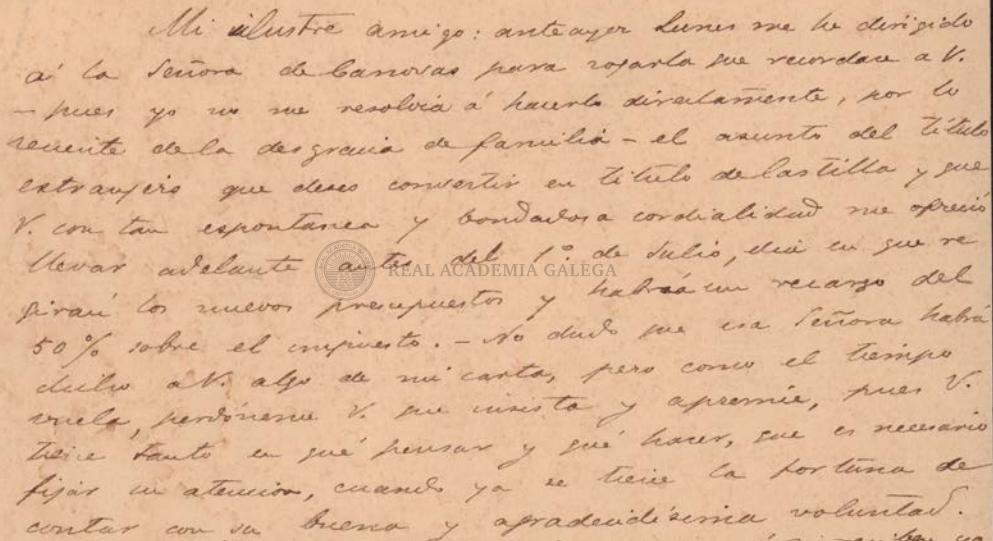 Mi ilustre amigo: anteayer Lunes me he dirigido
á la Señora de Canovas para rogarla que recordase a V.
– pues yo no me resolvia á hacerlo directamente, por lo
reciente de la desgracia de familia – el asunto del título
extranjero que deseo convertir en título de Castilla y que
V. con tan espontanea y bondadosa cordialidad me ofreció
llevar adelante antes del 1º. de Julio, dia en que re
girán los nuevos presupuestos y habrá un recargo del
50% sobre el impuesto. – No dudo que esa Señora habrá
dicho a V. algo de mi carta, pero como el tiempo
vuela, perdóneme V. que insista y apremie, pues V.
tiene tanto en qué pensar y qué hacer, que es necesario
fijar su atencion, cuando ya se tiene la fortuna de
contar con su buena y agradecidísima voluntad.
REAL ACADEMIA GALEGA